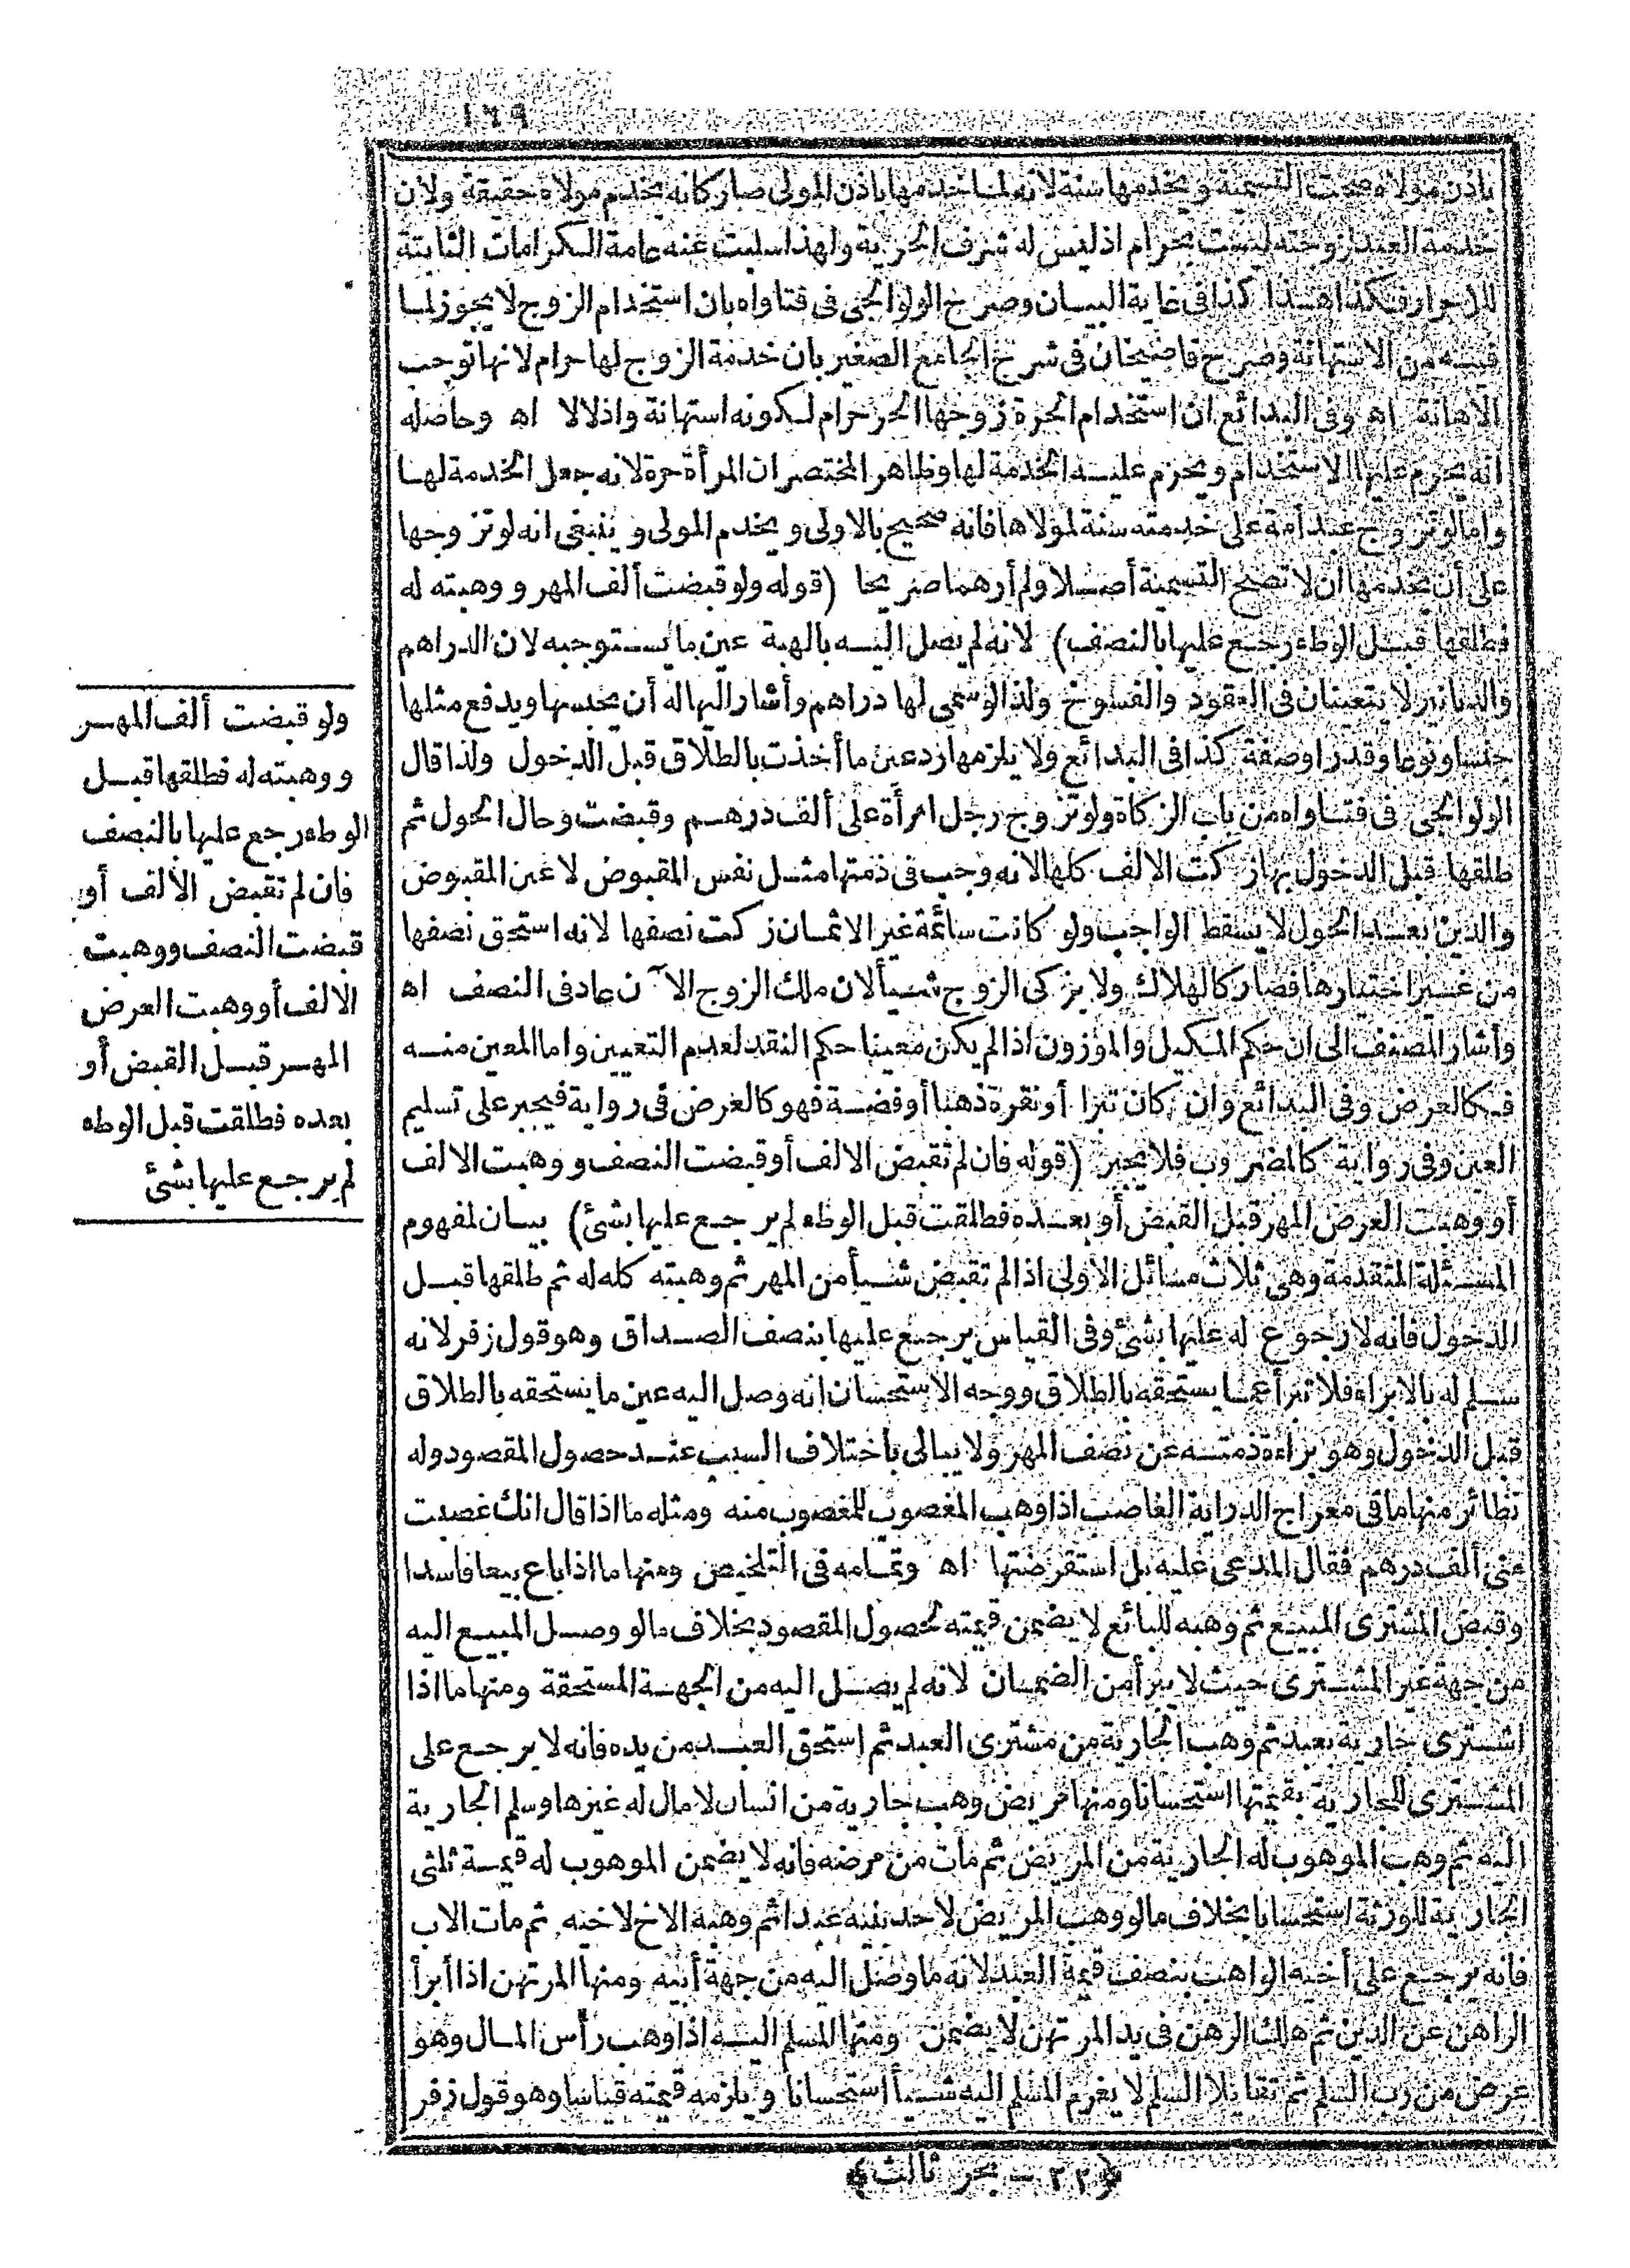 ١٦٩
باذن مولاه صحت التسمية ويخدمها سنة لانه لما خدمها باذن المولى صار كانه يخدم مولاه حقيقة ولان
خدمة العبد لزوجته ليست بحرام اذ ليس له شرف الحرية ولهذا سلبت عنه عامة الكرامات الثابتة
للاحرار فكذا هذا كذا فى غاية البيان وصرح الولوالجى فى فتاواه بان استخدام الزوج لا يجوز لما
فيه من الاستهانة وصرح قاضيخان فى شرح الجامع الصغير بان خدمة الزوج لها حرام لانها توجب
الاهانة اه وفى البدائع ان استخدام الحرة زوجها الحر حرام لكونه استهانة واذلالا اه وحاصله
انه يحرم عليها الاستخدام ويحرم عليه الخدمة لها وظاهر المختصر ان المرأة حرة لانه جعل الخدمة لها
واما لو تزوج عبد أمة على خدمته سنة لمولاها فانه صحيح بالاولى ويخدم المولى وينبغى انه لو تزوجها
على أن يخدمها ان لا تصح التسمية أصلا ولم أرهما صريحا (قوله ولو قبضت ألف المهر ووهبته له
فطلقها قبل الوطء رجع عليها بالنصف) لانه لم يصل اليه بالهبة عين ما يستوجبه لان الدراهم
والدنانير لا يتعينان فى العقود والفسوخ ولذا لو سمى لها دراهم وأشار اليها له أن يحبسها ويدفع مثلها
جنسا ونوعا وقدرا وصفة كذا فى البدائع ولا يلزمها رد عين ما أخذت بالطلاق قبل الدخول ولذا قال
الولوالجى فى فتاواه من باب الزكاة ولو تزوج رجل امرأة على ألف درهم وقبضت وحال الحول ثم
طلقها قبل الدخول بها زكت الالف كلها لانه وجب فى ذمتها مثل نفس المقبوض لا عين المقبوض
والدين بعد الحول لا يسقط الواجب ولو كانت سائمة غير الاثمان زكت نصفها لانه استحق نصفها
من غير اختيارها فصار كالهلاك ولا يزكى الزوج شيأ لان ملك الزوج الآن عاد فى النصف اه
وأشار المصنف الى ان حكم المكيل والموزون اذا لم يكن معينا حكم النقد لعدم التعيين واما المعين منه
فكالعرض وفى البدائع وان كان تبرا أو نقرة ذهبا أو فضة فهو كالعرض فى رواية فيجبر على تسليم
العين وفى رواية كالمضروب فلا يجبر (قوله فان لم تقبض الالف أو قبضت النصف ووهبت الالف
أو وهبت العرض المهر قبل القبض أو بعده فطلقت قبل الوطء لم يرجع عليها بشئ) بيان لمفهوم
المسئلة المتقدمة وهى ثلاث مسائل الاولى اذا لم تقبض شيأ من المهر ثم وهبته كله له ثم طلقها قبل
الدخول فانه لا رجوع له عليها بشئ وفى القياس يرجع عليها بنصف الصداق وهو قول زفر لانه
سلم له بالابراء فلا تبرأ عما يستحقه بالطلاق ووجه الاستحسان انه وصل اليه عين ما يستحقه بالطلاق
قبل الدخول وهو براءة ذمته عن نصف المهر ولا يبالى باختلاف السبب عند حصول المقصود وله
نظائر منها ما فى معراج الدراية الغاصب اذا وهب المغصوب للمغصوب منه ومثله ما اذا قال انك غصبت
منى ألف درهم فقال المدعى عليه بل استقرضتها اه وتمامه فى التلخيص ومنها ما اذا باع بيعا فاسدا
وقبض المشترى المبيع ثم وهبه للبائع لا يضمن قيمته لحصول المقصود بخلاف ما لو وصل المبيع اليه
من جهة غير المشترى حيث لا يبرأ من الضمان لانه لم يصل اليه من الجهة المستحقة ومنها ما اذا
اشترى جارية بعبد ثم وهب الجارية من مشترى العبد ثم استحق العبد من يده فانه لا يرجع على
المشترى للجارية بقيمتها استحسانا ومنها مريض وهب جارية من انسان لا مال له غيرها وسلم الجارية
اليه ثم وهب الموهوب له الجارية من المريض ثم مات من مرضه فانه لا يضمن الموهوب له قيمة ثلثى
الجارية للورثة استحسانا بخلاف ما لو وهب المريض لاحد بنيه عبدا ثم وهبه الاخ لاخيه ثم مات الاب
فانه يرجع على أخيه الواهب بنصف قيمة العبد لانه ما وصل اليه من جهة أبيه ومنها المرتهن اذا أبرأ
الراهن عن الدين ثم هلك الرهن فى يد المرتهن لا يضمن ومنها المسلم اليه اذا وهب رأس المال وهو
عرض من رب السلم ثم تقايلا السلم لا يغرم المسلم اليه شيأ استحسانا ويلزمه قيمته قياسا وهو قول زفر
ولو قبضت ألف المهر
ووهبته له فطلقها قبل
الوطء رجع عليها بالنصف
فان لم تقبض الألف أو
قبضت النصف ووهبت
الالف أو وهبت العرض
المهر قبل القبض أو
بعده فطلقت قبل الوطء
لم يرجع عليها بشئ
﴿٢٢ – بحر ثالث﴾